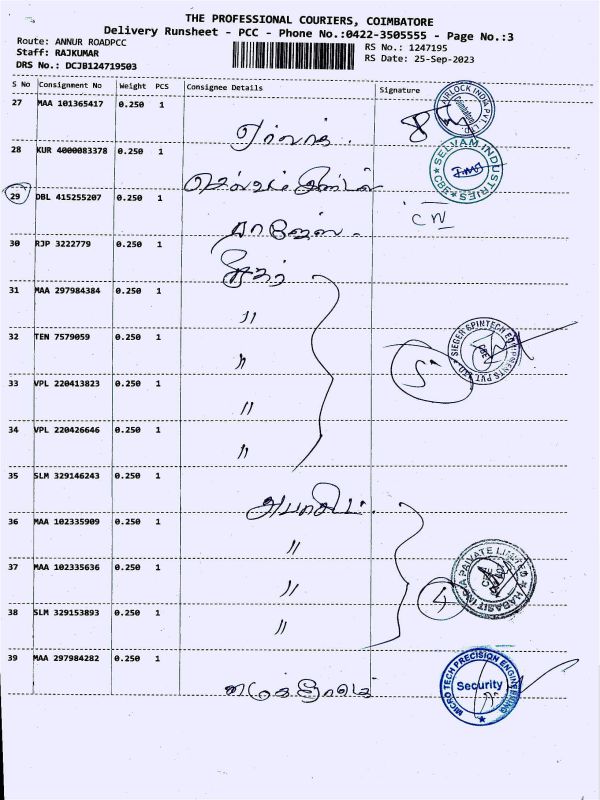 THE PROFESSIONAL COURIERS, COIMBATORE
Delivery Runsheet - PCC - Phone No.:0422-3505555 - Page No.:3
Route: ANNUR ROADPCC
RS No.: 1247195
Staff: RAJKUMAR
RS Date: 25-Sep-2023
DRS No.: DCJB124719503
S No Consignment No Weight PCS Consignee Details Signature
27 MAA 101365417 0.250 1
AIRLOCK INDIA PVT. LTD.
28 KUR 4000083378 0.250 1
SELVAM INDUSTRIES CBE
29 DBL 415255207 0.250 1
30 RJP 3222779 0.250 1
31 MAA 297984384 0.250 1
〃
32 TEN 7579059 0.250 1
〃
SIEGER SPINTECH EQUIPMENTS PVT LTD
5
33 VPL 220413823 0.250 1
〃
34 VPL 220426646 0.250 1
〃
35 SLM 329146243 0.250 1
36 MAA 102335909 0.250 1
〃
37 MAA 102335636 0.250 1
〃
HABASIT INDIA PRIVATE LIMITED
4
38 SLM 329153893 0.250 1
〃
39 MAA 297984282 0.250 1
MICRO TECH PRECISION ENGINEERING
Security